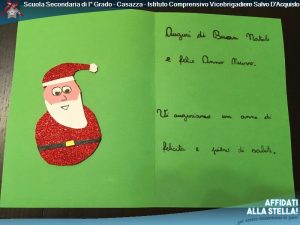 Scuola Secondaria di I° Grado - Casazza - Istituto Comprensivo Vicebrigadiere Salvo D'Acquisto
Auguri di Buon Natale
e felice Anno Nuovo.
Vi auguriamo un anno di
felicità e pieno di salute.
AFFIDATI
ALLA STELLA!